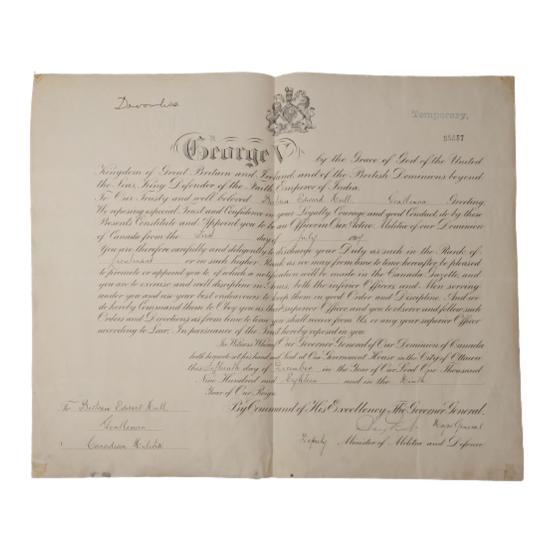 Temporary.
George V
by the Grace of God of the United
Kingdom of Great Britain and Ireland, and of the British Dominions beyond
the Seas, King Defender of the Faith, Emperor of India.
To Our Trusty and well beloved Edward Hall Gentleman Greeting,
We reposing especial Trust and Confidence in your Loyalty Courage and good Conduct do by these
Presents Constitute and Appoint you to be an Officer in Our Active Militia of our Dominion
of Canada from the day of July
You are therefore carefully and deligently to discharge your Duty as such in the Rank of
Lieutenant or in such higher Rank as we may from time to time hereafter be pleased
to promote or appoint you to, of which a notification will be made in the Canada Gazette, and
you are to exercise and well discipline in Arms, both the inferior Officers and Men serving
under you and use your best endeavours to keep them in good Order and Discipline. And we
do hereby Command them to Obey you as their superior Officer, and you to observe and follow such
Orders and Directions as from time to time you shall receive from Us, or any your superior Officer
according to Law. In pursuance of the Trust hereby reposed in you.
In Witness Whereof Our Governor General of Our Dominion of Canada
hath hereunto set his hand and Seal at Our Government House in the City of Ottawa
this day of December in the Year of Our Lord One Thousand
Nine Hundred and Eighteen and in the Ninth
Year of Our Reign.
By Command of His Excellency The Governor General.
To Edward Hall
Gentleman
Canadian Militia
Major General
Deputy Minister of Militia and Defence